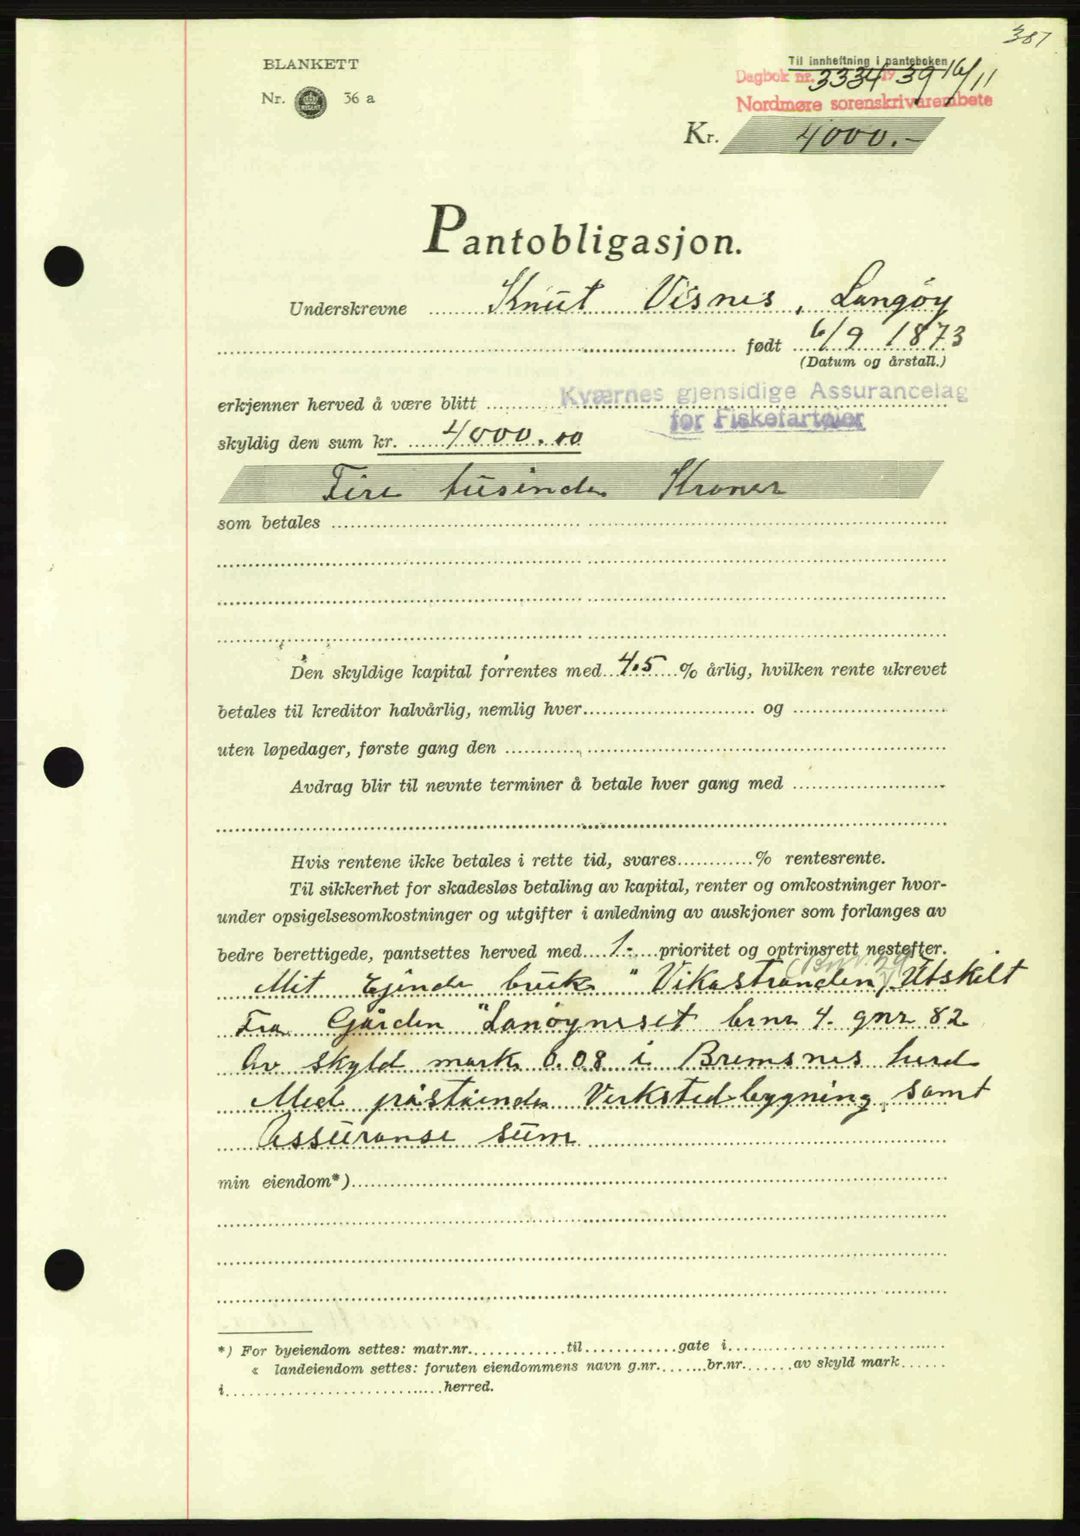 387
BLANKETT
Til innheftning i panteboken
Dagbok nr. 3334 1939 16/11
Nr. 36 a
Nordmøre sorenskrivarembete
Kr. 4000.-
Pantobligasjon.
Underskrevne Knut Visnes, Langøy
født 6/9 1873
(Datum og årstall.)
erkjenner herved å være blitt Kværnes gjensidige Assurancelag
for Fiskefartøier
skyldig den sum kr. 4000.00
Fire tusinde Kroner
som betales
Den skyldige kapital forrentes med 4.5 % årlig, hvilken rente ukrevet
betales til kreditor halvårlig, nemlig hver og
uten løpedager, første gang den
Avdrag blir til nevnte terminer å betale hver gang med
Hvis rentene ikke betales i rette tid, svares % rentesrente.
Til sikkerhet for skadesløs betaling av kapital, renter og omkostninger hvor-
under opsigelsesomkostninger og utgifter i anledning av auskjoner som forlanges av
bedre berettigede, pantsettes herved med 1- prioritet og optrinsrett nestefter.
Mit Ejende bruk "Vikastranden, Utskilt
Fra Gården "Lanøyneset brnr 4. gnr 82
Av skyld mark 0.08 i Bremsnes herd
Med påståénde Verkstedbygning, samt
Assuranse sum
min eiendom*)
*) For byeiendom settes: matr.nr. til gate i
« landeiendom settes: foruten eiendommens navn g.nr. br.nr. av skyld mark
i herred.